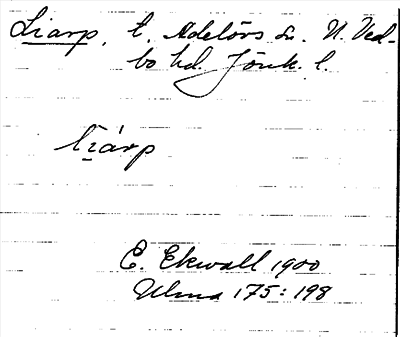 Liarp, t. Adelövs sn. N. Ved-
bo hd. Jönk. l.
líárp
E. Ekwall 1900
Ulma 175:198